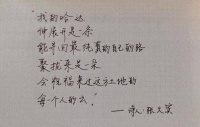 "我的哈达
伸展开是一条
能寻回最纯真的自己的路
聚拢来是一朵
会祝福来过这方土地的
每个人的云"
——诗人·张文笑